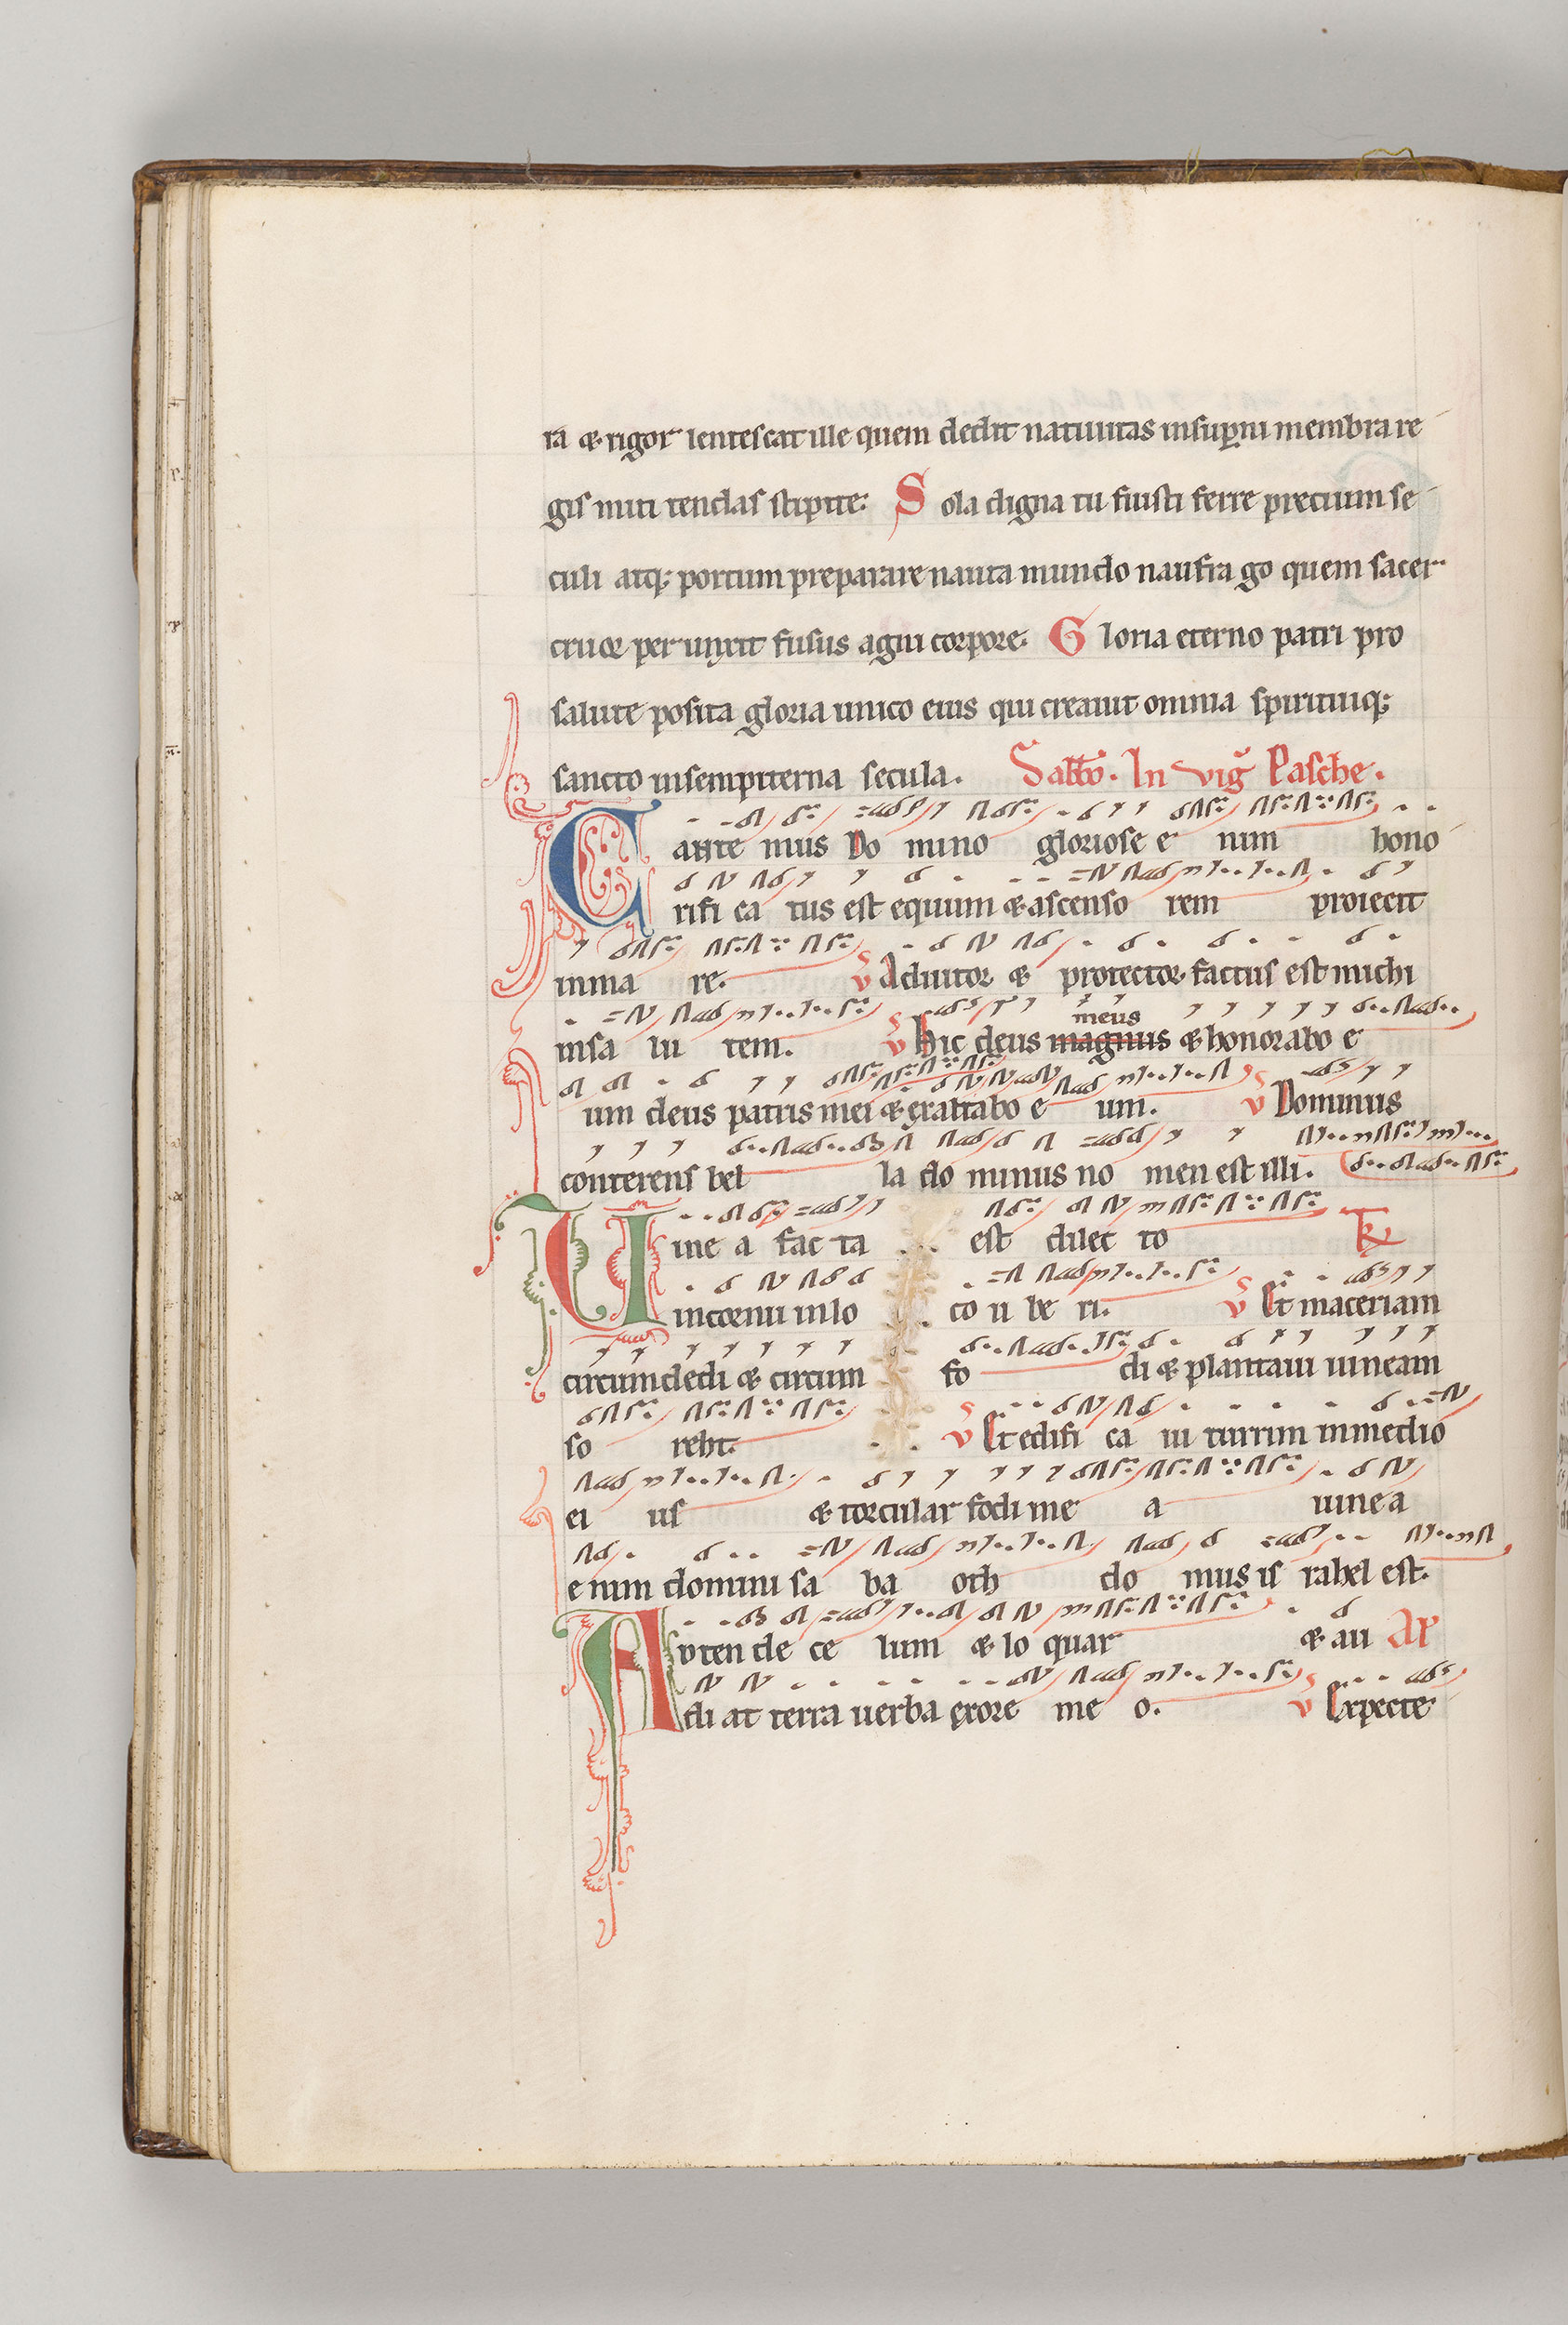 ra & rigor lentescat ille quem dedit natiuitas insup̲ni membra re
gis miti tendas stipite: Sola digna tu fuisti ferre precium se
culi atq; portum preparare nauta mundo naufra go quem sacer
cruor per unxit fusus agni corpore. Gloria eterno patri pro
salute posita gloria unico eius qui creauit omnia spirituiq;
sancto insempiterna secula. Sabb̄o. In vig̃ Pasche.
Cante mus Do mino gloriose e nim hono
rifi ca tus est equum & ascenso rem proiecit
inma re. v Adiutor & protector factus est michi
insa lu tem. v Hic deus magnus meus & honorabo e
um deus patris mei & exaltabo e um. v Dominus
conterens bel la do minus no men est illi.
Uine a fac ta est dilec to Tr
incornu inlo co u be ri. v Et maceriam
circumdedi & circum fo di & plantaui uineam
so reht. v Et edifi ca ui turrim inmedio
ei us & torcular fodi me a uinea
e nim domini sa ba oth do mus is rahel est.
Atten de ce lum & lo quar & au Ar
di at terra uerba exore me o. v Expecte